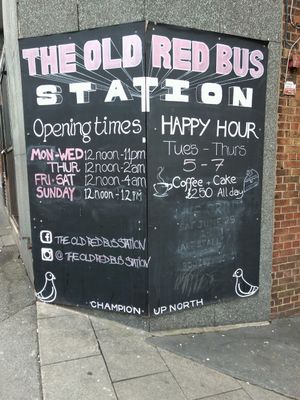 THE OLD RED BUS
STATION
Opening times
MON-WED 12noon-11pm
THUR 12noon-2am
FRI-SAT 12noon-4am
SUNDAY 12noon-12
HAPPY HOUR
Tues - Thurs
5-7
Coffee + Cake
£2.50 All day
THE OLD RED BUS STATION
@ THE OLD RED BUS STATION
CHAMPION UP NORTH